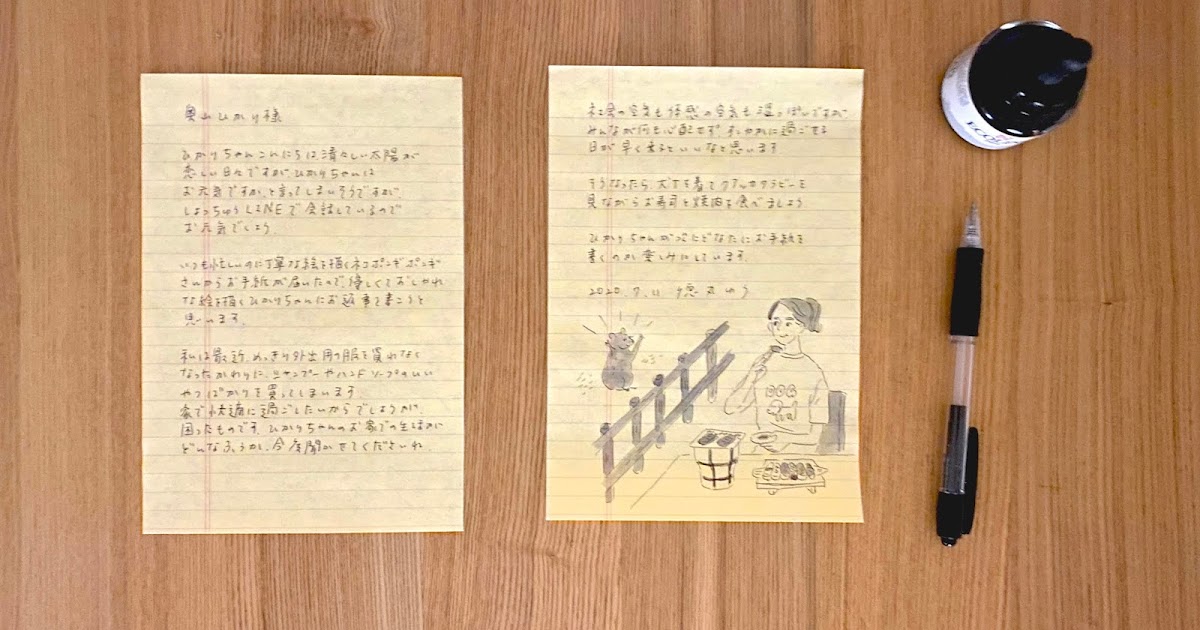 奥山ひかり様
ひかりちゃんこんにちは、清々しい太陽が
恋しい日々ですが、ひかりちゃんは
お元気ですか、と言ってしまいそうですが、
しょっちゅうLINEで会話しているので
お元気でしょう。
いつも忙しいのに丁寧な絵を描くネコポンギポンギ
さんからお手紙が届いたので、優しくておしゃれ
な絵を描くひかりちゃんにお返事を書こうと
思います。
私は最近、めっきり外出用の服を買わなく
なったかわりに、シャンプーやハンドソープのいい
やつばかりを買ってしまいます。
家で快適に過ごしたいからでしょうが、
困ったものです。ひかりちゃんのお家での生活が
どんなふうか、今度聞かせてくださいね。
社会の空気も体感の空気も湿っぽいですが
みんなが何も心配せず、すこやかに過ごせる
日が早く来るといいなと思います。
そうなったら、犬Tを着てクアッカワラビーを
見ながらお寿司と焼肉を食べましょう。
ひかりちゃんがつぎにどなたにお手紙を
書くのか楽しみにしています。
2020.7.11 徳丸ゆう
DOG